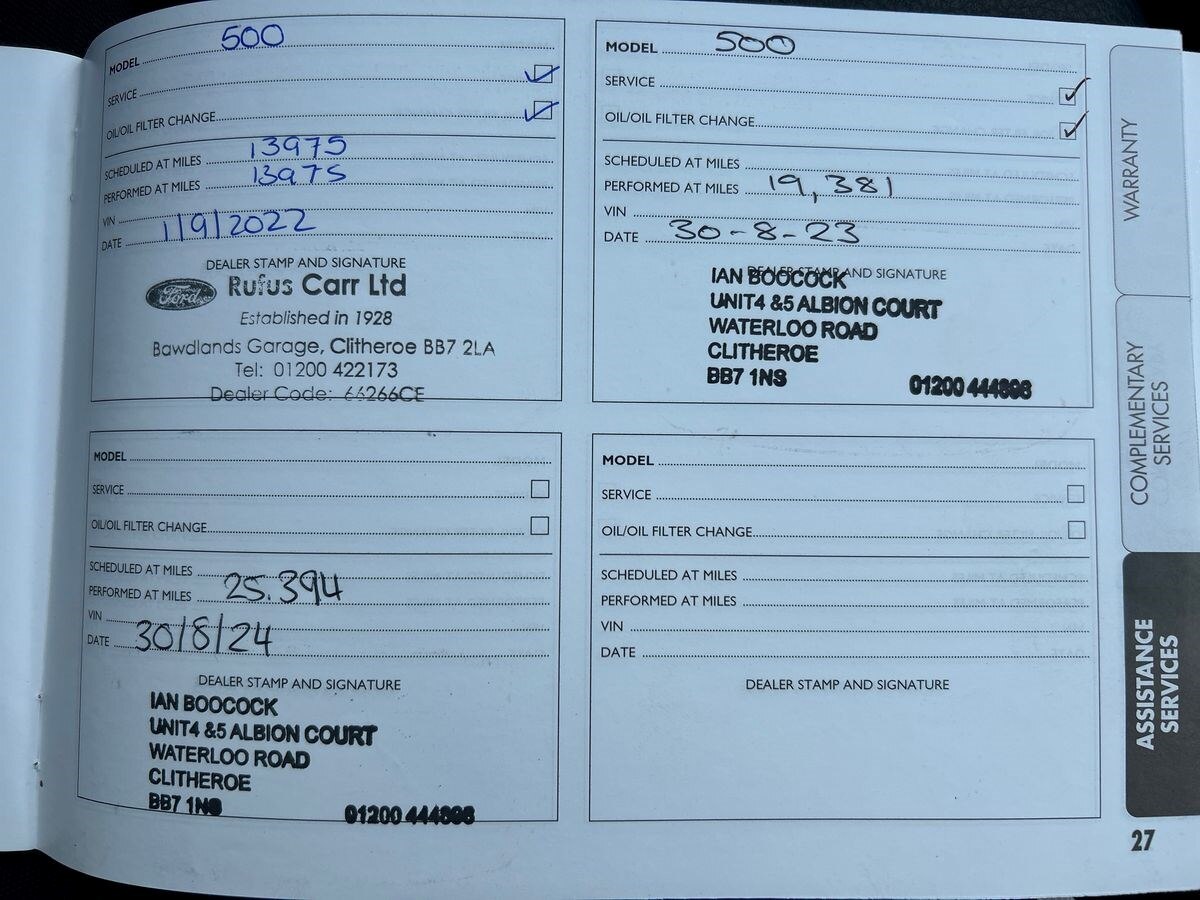 MODEL 500
SERVICE
OIL/OIL FILTER CHANGE
SCHEDULED AT MILES 13975
PERFORMED AT MILES 13975
VIN
DATE 1/9/2022
DEALER STAMP AND SIGNATURE
Ford Rufus Carr Ltd
Established in 1928
Bawdlands Garage, Clitheroe BB7 2LA
Tel: 01200 422173
Dealer Code: 66266CE
MODEL 500
SERVICE
OIL/OIL FILTER CHANGE
SCHEDULED AT MILES
PERFORMED AT MILES 19,381
VIN
DATE 30-8-23
DEALER STAMP AND SIGNATURE
IAN BOOCOCK
UNIT4 &5 ALBION COURT
WATERLOO ROAD
CLITHEROE
BB7 1NS 01200
MODEL
SERVICE
OIL/OIL FILTER CHANGE
SCHEDULED AT MILES
PERFORMED AT MILES 25.394
VIN
DATE 30/8/24
DEALER STAMP AND SIGNATURE
IAN BOOCOCK
UNIT4 &5 ALBION COURT
WATERLOO ROAD
CLITHEROE
BB7 1NS 01200
MODEL
SERVICE
OIL/OIL FILTER CHANGE
SCHEDULED AT MILES
PERFORMED AT MILES
VIN
DATE
DEALER STAMP AND SIGNATURE
WARRANTY
COMPLEMENTARY
SERVICES
ASSISTANCE
SERVICES
27